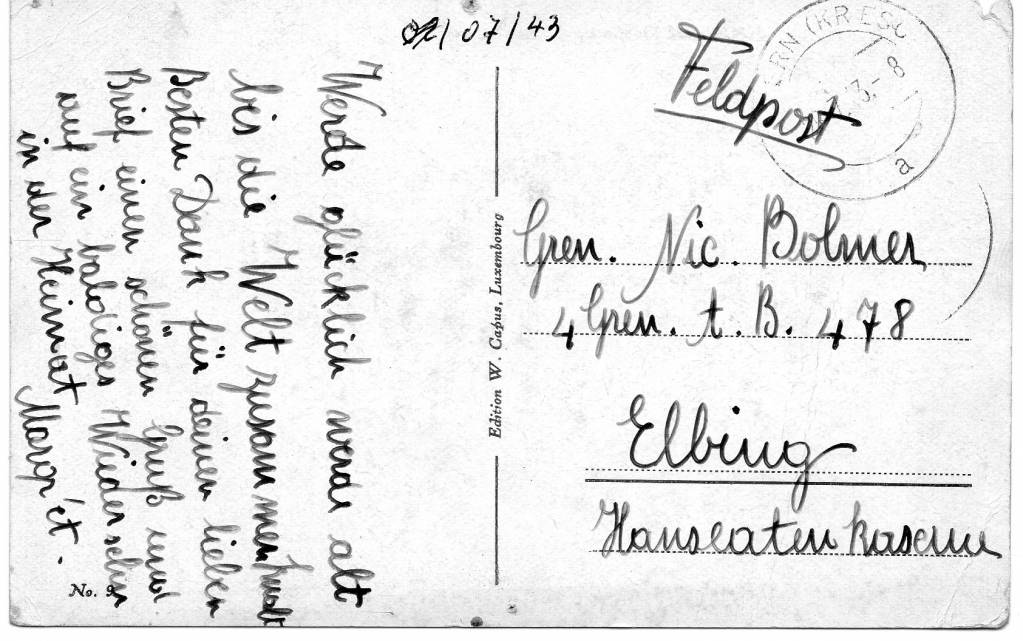 02/07/43
Werde glücklich werde alt
bis die Welt zusammenknalt
Besten Dank für deinen lieben
Brief einen schönen Gruß und
auf ein baldiges Wiedersehn
in der Heimat
Margr'et.
No. 9
Edition W. Capus, Luxembourg
Feldpost
RN (KR ESC
3-8
a
Gren. Nic. Bolmer
4 Gren. t. B. 478
Elbing
Hanseatenkaserne